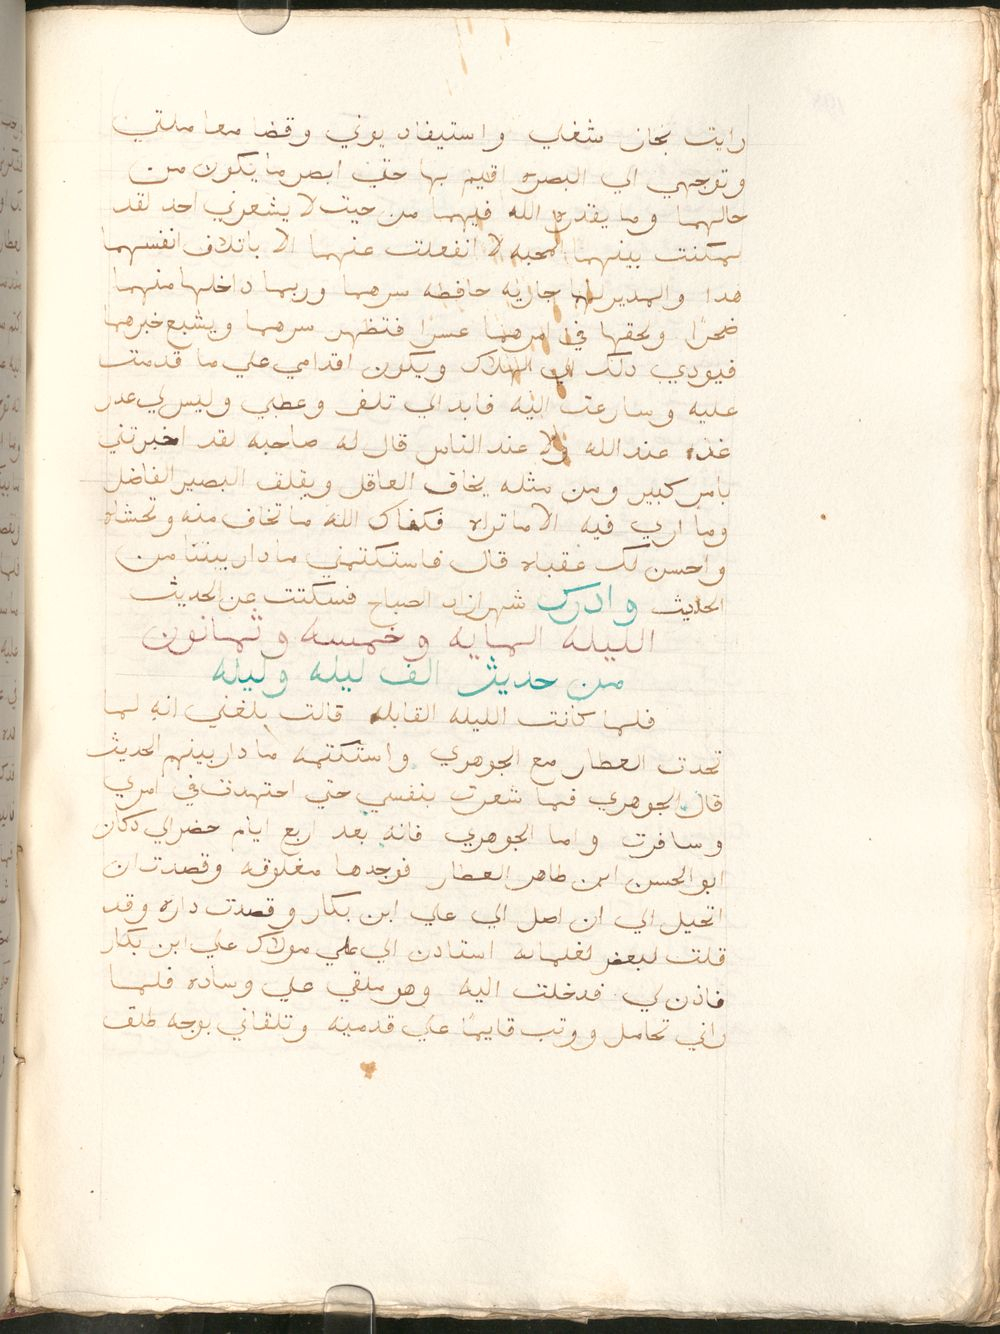 رايت نجاز شغلي واستيفا ديوني وقضا معاملتي
وتوجهي الي البصره اقيم بها حتي ابصر ما يكون من
حالهما وما يقدره الله فيهما من حيت لا يشعرني احد لقد
تمكنت بينهما المحبه لا انفعلت عنهما الا باتلاف انفسهما
هدا والمدير لها جاريه حافظه سرهما وربما داخلها منهما
ضجرا ولحقها في امرهما عسرا فتظهر سرهما ويشيع خبرهما
فيودي دلك الي الهلاك ويكون اقدامي علي ما قدمت
عليه وسارعت اليه قايد الي تلفي وعطبي وليس لي عدر
عند الله ولا عند الناس قال له صاحبه لقد اخبرتني
بامر كبير ومن مثله يخاف العاقل ويقلق البصير الفاضل
وما اري فيه الا ما تراه فكفاك الله ما تخاف منه وتخشاه
واحسن لك عقباه قال فاستكتمني ما دار بيننا من
الحديث وادرك شهرازاد الصباح فسكتت عن الحديث
الليله المايه وخمسه وثمانون
من حديث الف ليله وليله
فلما كانت الليله القابله قالت بلغني انه لما
تحدت العطار مع الجوهري واستكتمه ما دار بينهم الحديث
قال الجوهري فما شعرت بنفسي حتي اجتهدت في امري
وسافرت واما الجوهري فانه بعد اربع ايام حضر الي دكان
ابو الحسن ابن طاهر العطار فوجدها مغلوقه وقصدت ان
اتحيل الي ان اصل الي علي ابن بكار وقصدت داره وقد
قلت لبعض لغلمانه استادن الي علي مولاك علي ابن بكار
فاذن لي فدخلت اليه وهو ملقي علي وساده فلما
راني تحامل ووتب قايما علي قدميه وتلقاني بوجه طلق